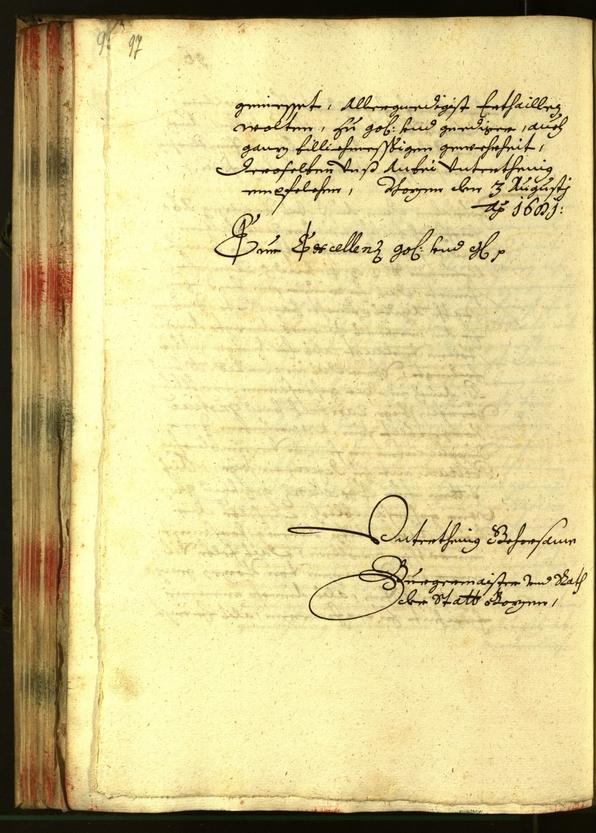 97
geniesset, Allergnedigist Erthaillen
wolten, Zu gol: und gnedigen, auch
ganz billichmessigen gewehrheit,
Deroselben Unß Anbei Untertheinig
empfelchen, Bozen den 3 Augusti
Ao 1681:
Euer Excellenz gol: und
Untertheinig Gehorsame
Burgermaister und Rath
der Statt Bozen,